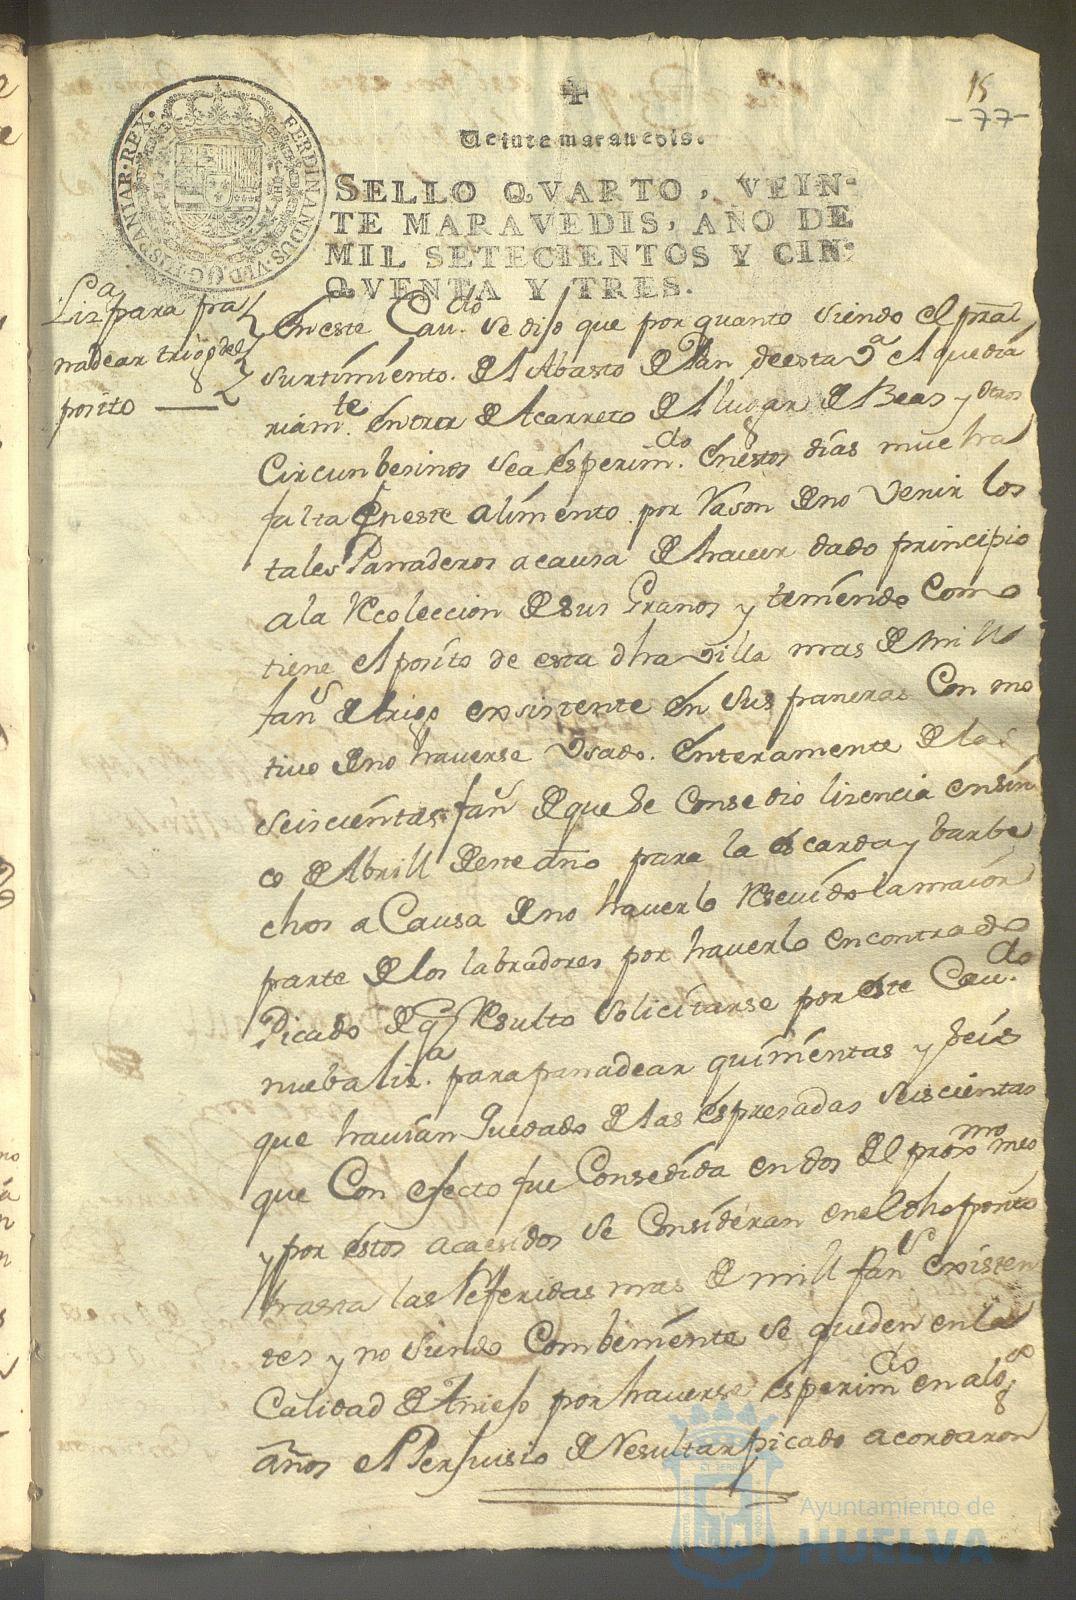 15
-77-
Veinte maravedis.
SELLO QVARTO, VEIN-
TE MARAVEDIS, AÑO DE
MIL SETECIENTOS Y CIN-
QVENTA Y TRES.
FERDINANDUS.VI.D.G.HISPANIAR.REX.
Lizª para pa
nadear trigo del
posito
En este Cav.do se dijo que por quanto siendo el pral
surtimiento. del Abasto de Pan de esta Vª el que dia
riam.te entra de Acarreto del lugar de Beas y otros
Circunbesinos se a esperim.do en estos dias mucha
falta en este alimento por rason de no venir los
tales Panaderos a causa de haver dado principio
a la Recoleccion de sus Granos y teniendo como
tiene el posito de esta dha villa mas de mill
fan.s de trigo existente en sus paneras con mo
tivo de no haverse Usado. enteramente de las
seiscientas fan.s de que se Consedio lizencia en sin
co de Abrill de este año para la escarda y barbe
chos a Causa de no haverlo Resevido la maior
parte de los labradores por haverlo encontrado
Picado de q.e Resulto solicitarse por este Cav.do
nueba liz.ª para panadear quinientas y seis
que havian Quedado de las espresadas seiscientas
que Con efecto fue Consedida en dos del prox.mo mes
y por estos acaesidos se Consideran en el dho posito
hasta las Referidas mas de mill fan.s existen
tes y no siendo Combeniente se queden en la
Calidad de Añejo por haverse esperim.do en alg.s
años el Perjuisio de Resultar picado acordaron
Ayuntamiento de
HUELVA